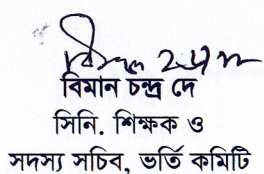 বিমান চন্দ্র দে
সিনি. শিক্ষক ও
সদস্য সচিব, ভর্তি কমিটি